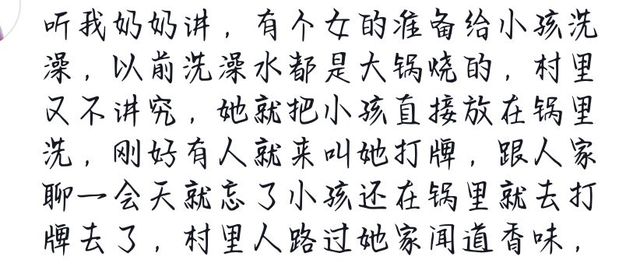 听我奶奶讲，有个女的准备给小孩洗
澡，以前洗澡水都是大锅烧的，村里
又不讲究，她就把小孩直接放在锅里
洗，刚好有人就来叫她打牌，跟人家
聊一会天就忘了小孩还在锅里就去打
牌去了，村里人路过她家闻道香味，